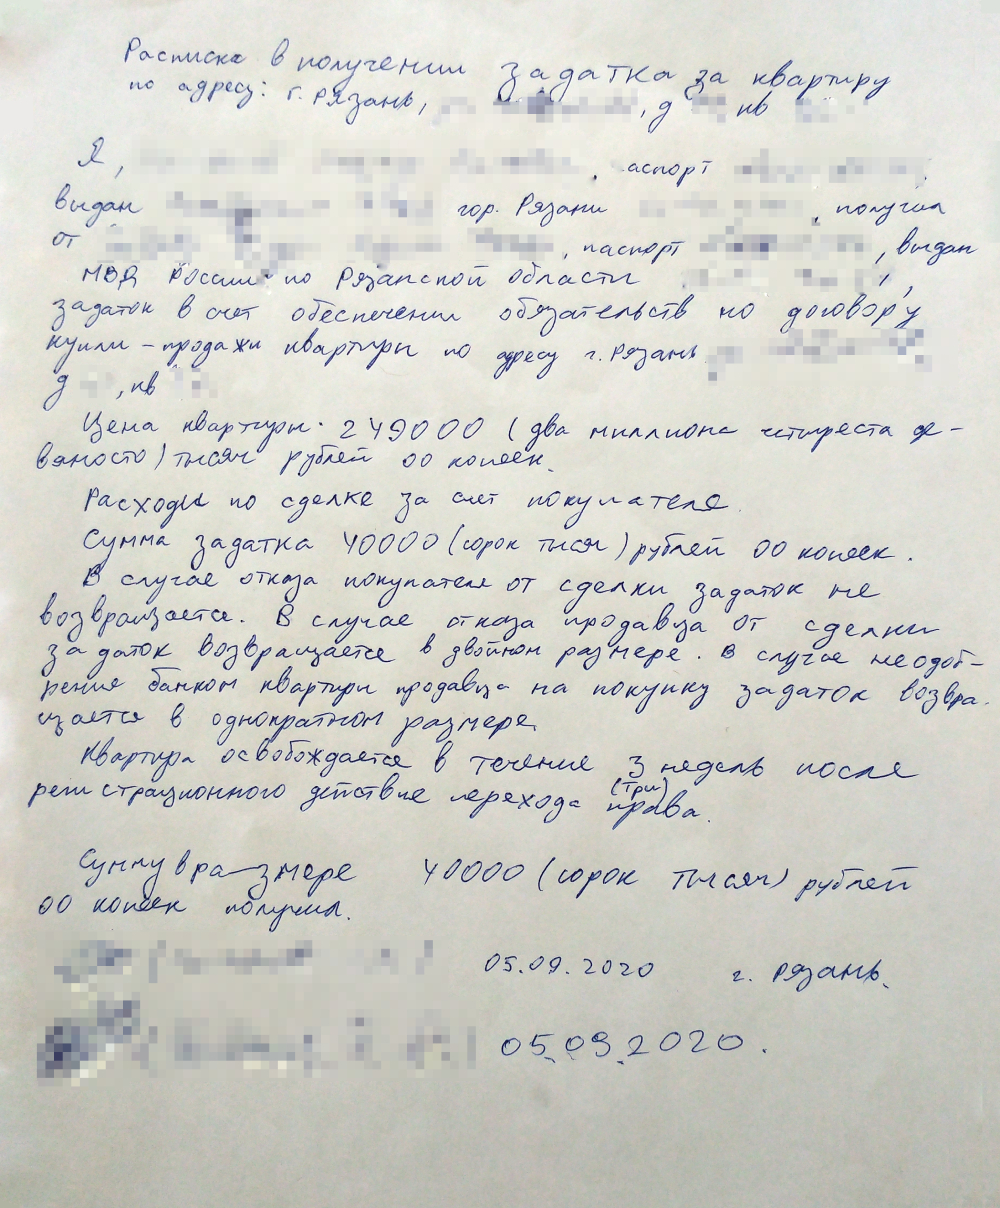 Расписка в получении задатка за квартиру
по адресу: г. Рязань, , д кв
Я, , аспорт
выдан гор. Рязани , получил
от , паспорт , выдан
МВД России по Рязанской области ,
задаток в счет обеспечении обязательств по договору
купли-продажи квартиры по адресу г. Рязань
д , кв
Цена квартиры. 249000 (два миллиона четыреста де-
вяносто) тысяч рублей 00 копеек.
Расходы по сделке за счет покупателя.
Сумма задатка 40000 (сорок тысяч) рублей 00 копеек.
В случае отказа покупателя от сделки задаток не
возвращается. В случае отказа продавца от сделки
задаток возвращается в двойном размере. В случае неодоб-
рения банком квартиры продавца на покупку задаток возвра-
щается в однократном размере.
Квартира освобождается в течение 3 недель после
(три)
регистрационного действие перехода права.
Сумму в размере 40000 (сорок тысяч) рублей
00 копеек получил.
05.09.2020 г. Рязань.
05.09.2020.